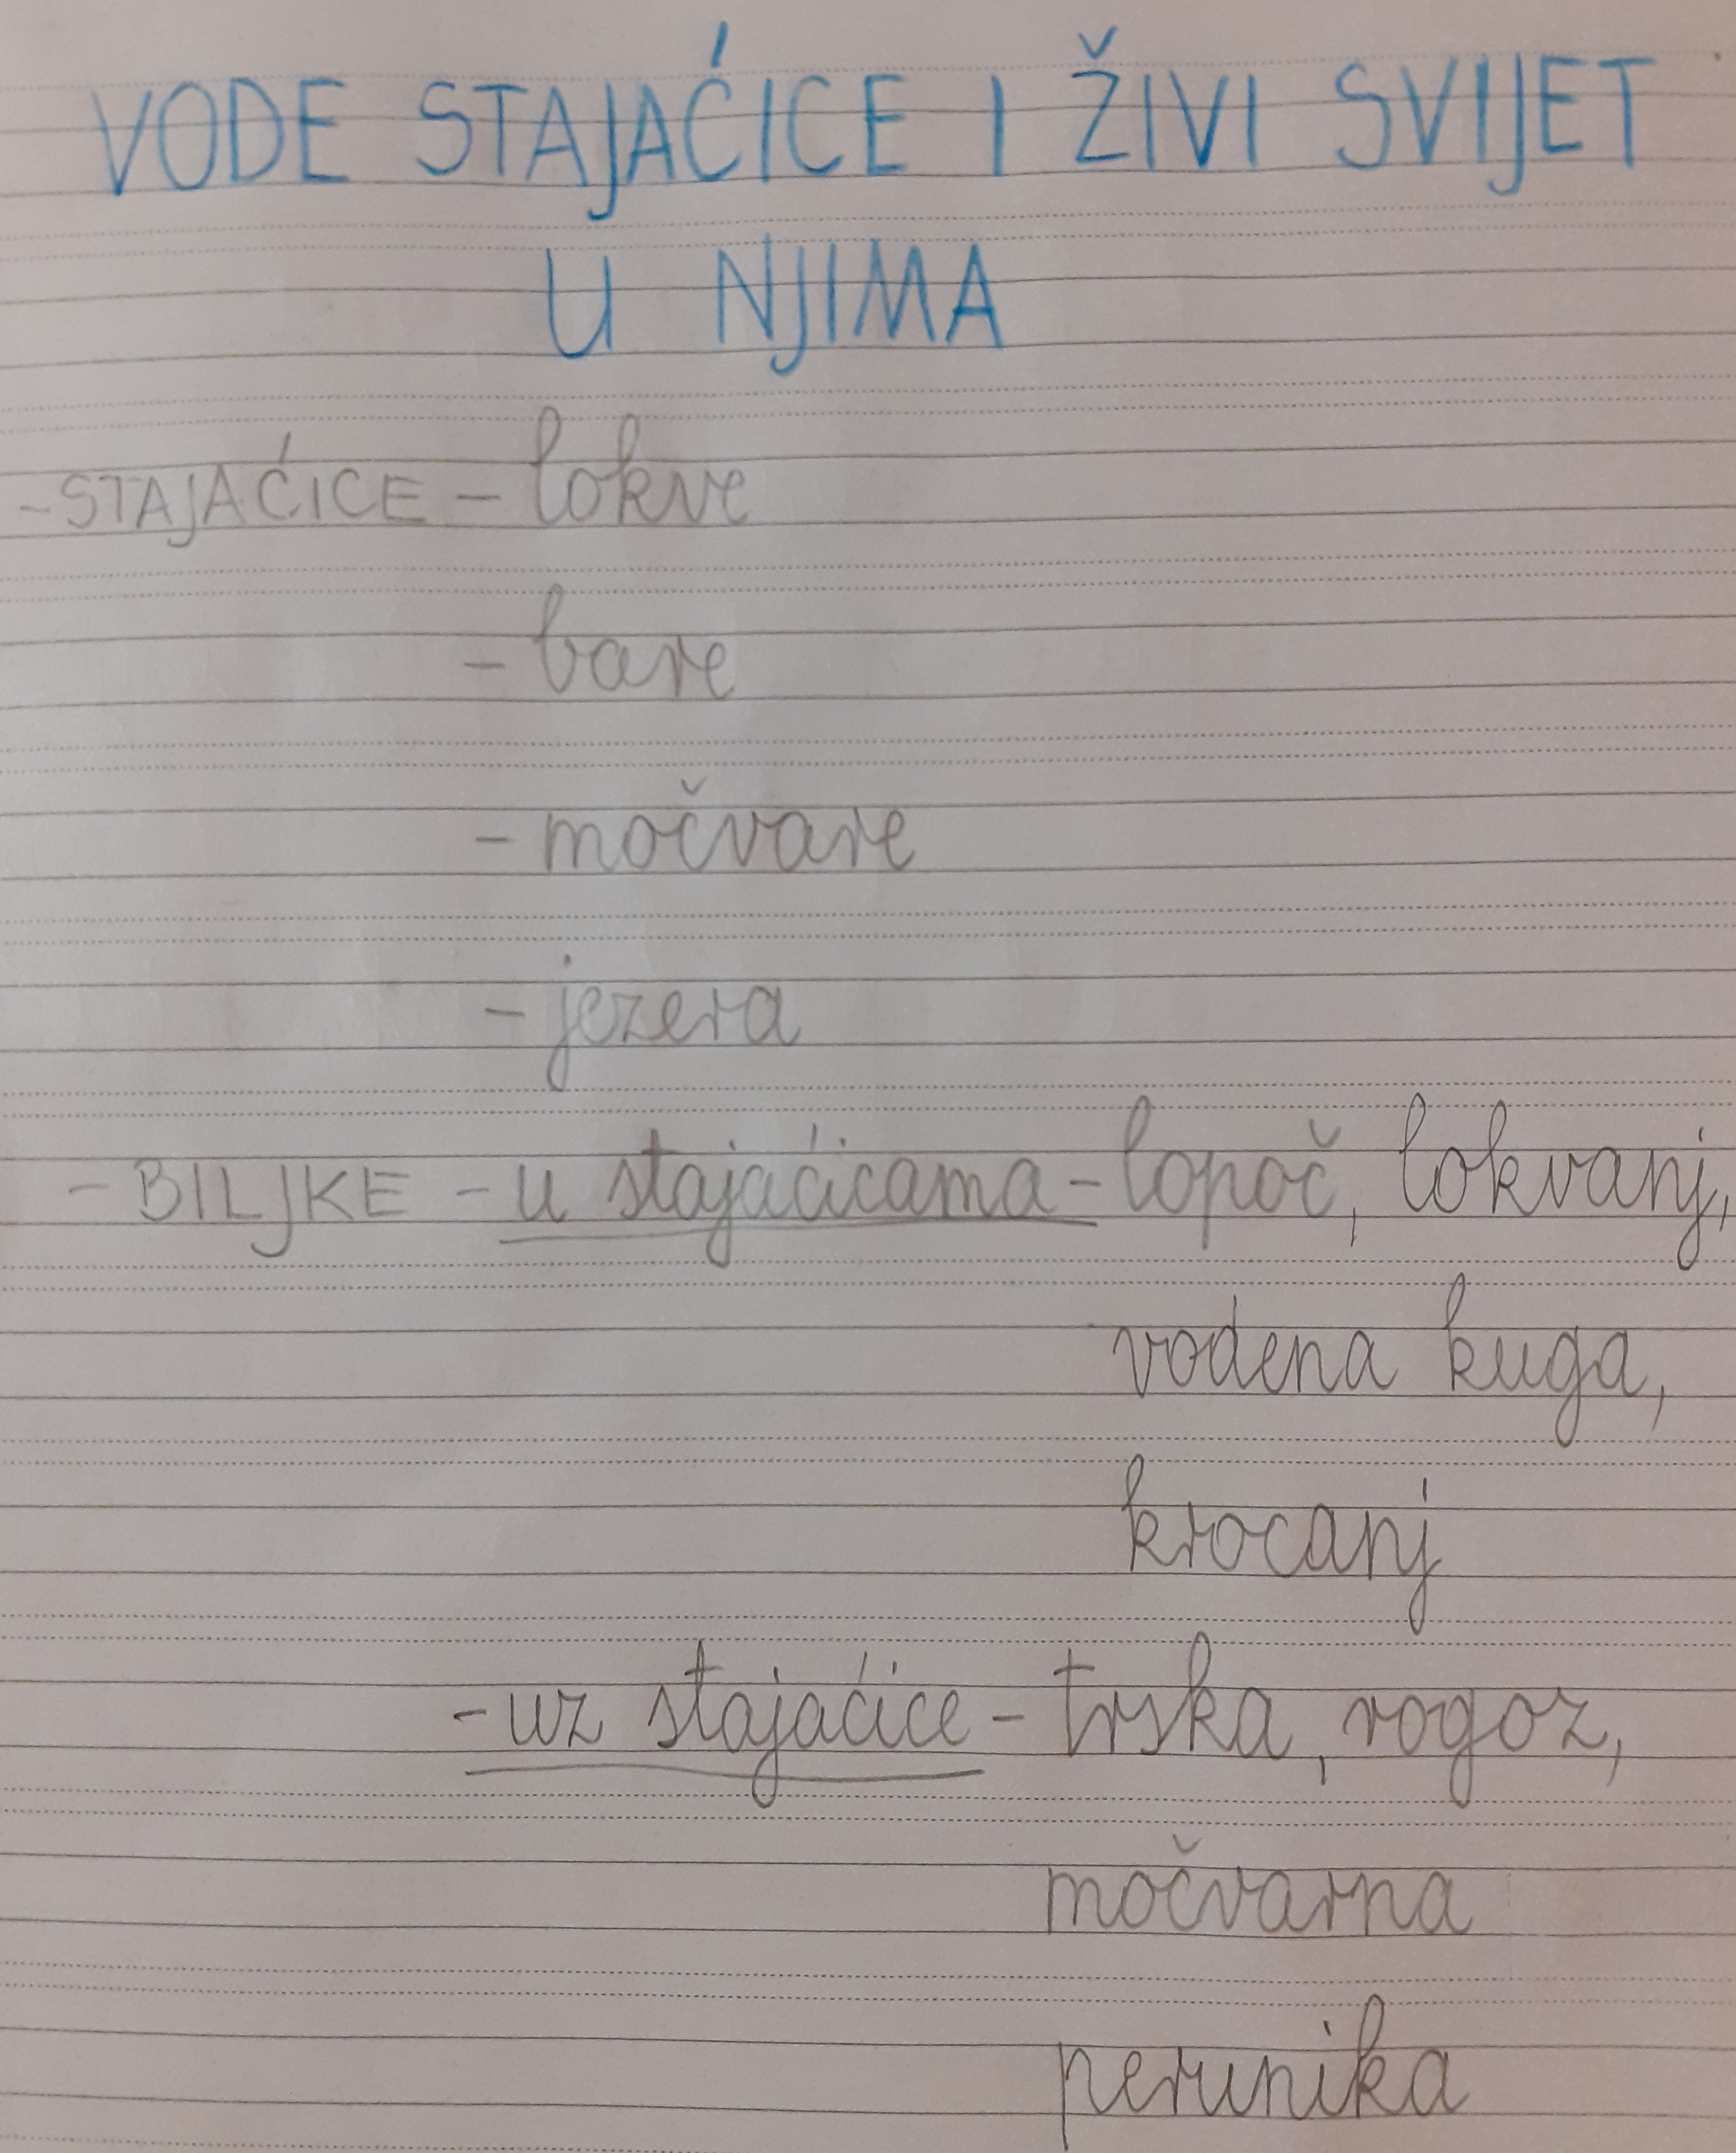 VODE STAJAĆICE I ŽIVI SVIJET
U NJIMA
-STAJAĆICE - lokve
- bare
- močvare
- jezera
- BILJKE - u stajaćicama - lopoč, lokvanj,
vodena kuga,
krocanj
- uz stajaćice - trska, rogoz,
močvarna
perunika